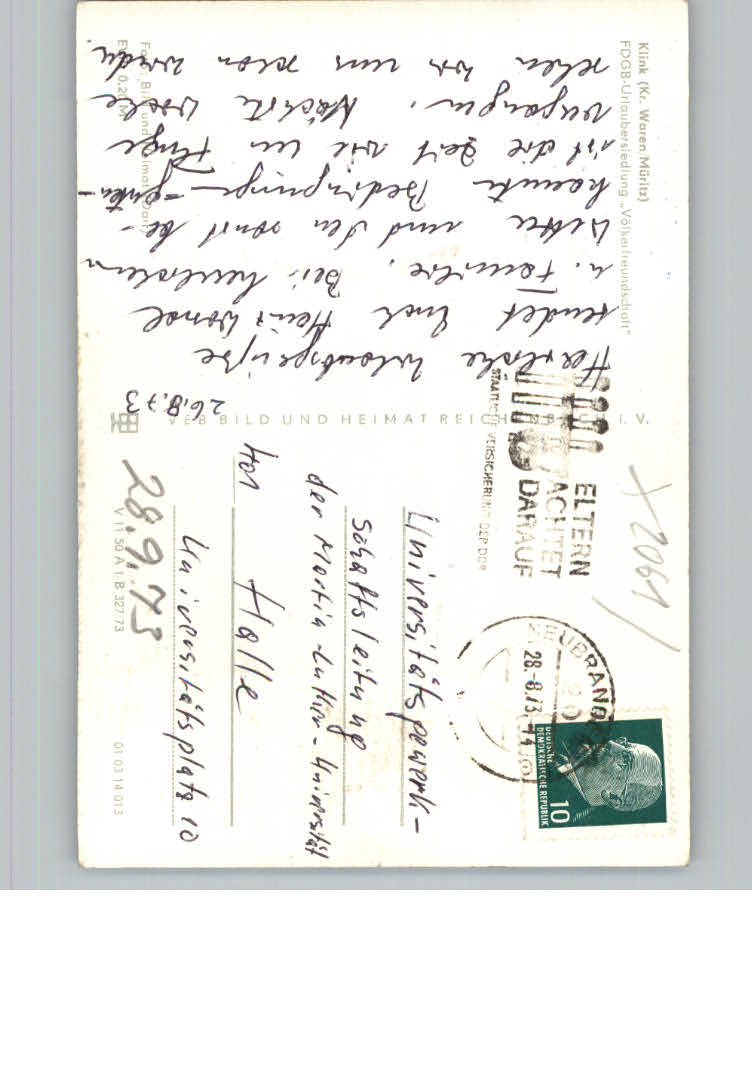 Klink (Kr. Waren/Müritz)
FDGB-Urlaubersiedlung „Völkerfreundschaft"
26.8.73
Herzliche Urlaubsgrüße
sendet Euch Heinz
u. Familie. Bei herrlichem
Wetter und den sonst be-
kannten Bedingungen
ist die Zeit wie im Fluge
vergangen. Nächste Woche
sehen wir uns schon wieder
EVP 0,20 M
VEB BILD UND HEIMAT REICHENBACH i. V.
ELTERN
ACHTET
DARAUF
STAATLICHE VERSICHERUNG DER DDR
NEUBRANDENBURG
28.-8.73
DEUTSCHE
DEMOKRATISCHE REPUBLIK
10
x 2061
Universitätsgewerk-
schaftsleitung
der Martin-Luther-Universität
401 Halle
Universitätsplatz 10
28.9.73
V 11 50 A 1 B 327/73
01 03 14 013